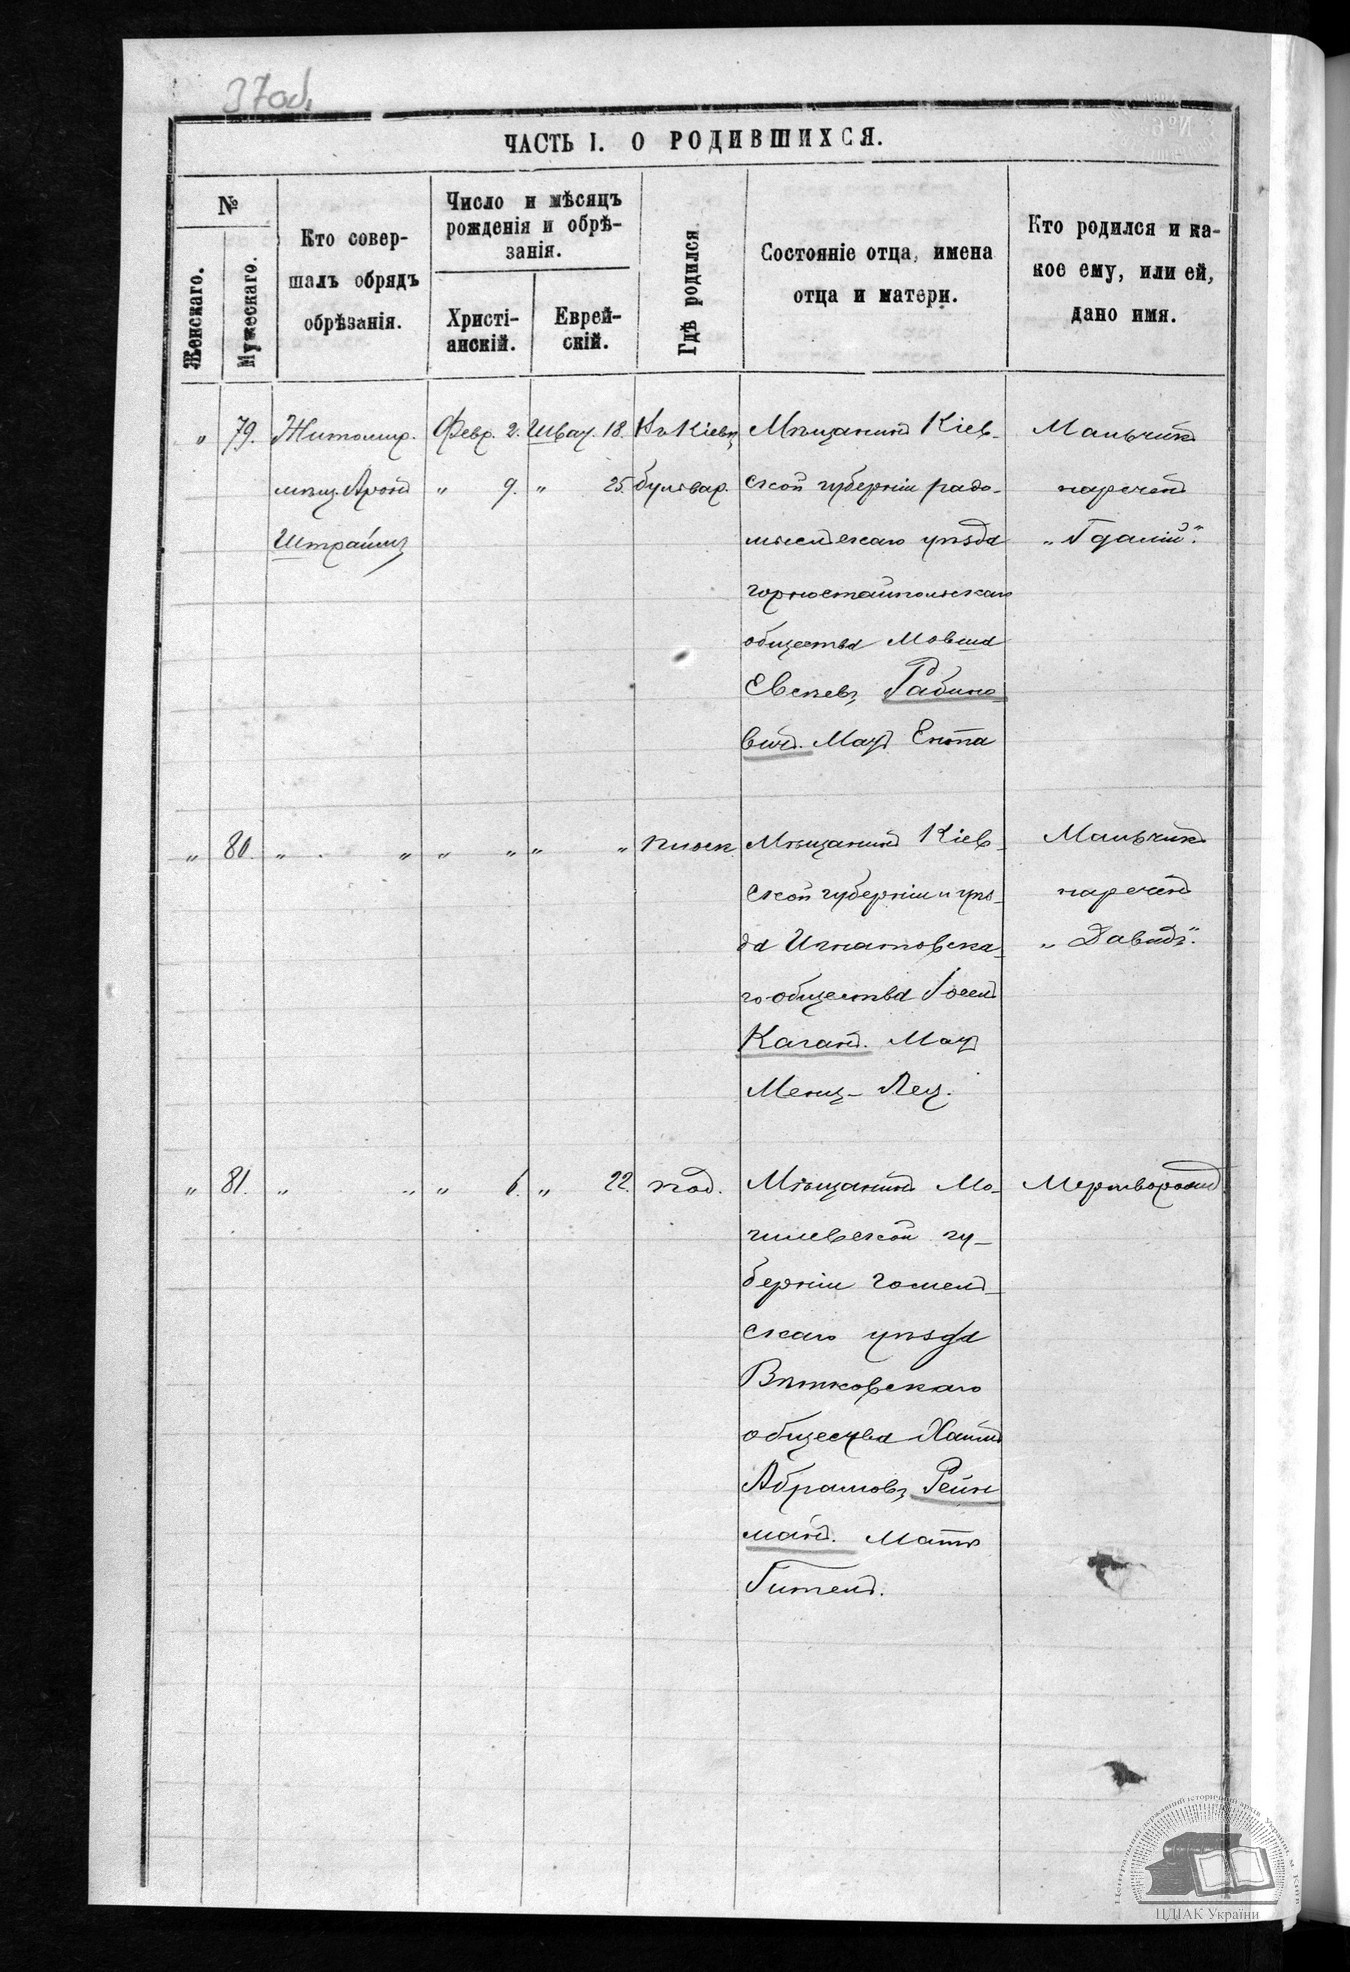 37об.
ЧАСТЬ I. О РОДИВШИХСЯ.
№
Женскаго.
Мужескаго.
Кто совер-
шалъ обрядъ
обрѣзанія.
Число и мѣсяцъ
рожденія и обрѣ-
занія.
Христі-
анскій.
Еврей-
скій.
Гдѣ родился
Состояніе отца, имена
отца и матери.
Кто родился и ка-
кое ему, или ей,
дано имя.
„ 79. Житомир. Февр. 2. Шват. 18. Въ Кіевѣ Мѣщанинъ Кіев-
мѣщ. Аронъ „ 9. „ 25. бульвар. ской губерніи радо-
Штраймъ мысльскаго уѣзда
горностайпольскаго
общества Мовша
Евсеевъ Рабино-
вичъ. Мать Ента
Мальчикъ
нареченъ
„Гдалій".
„ 80. „ „ „ „ „ „ плоск. Мѣщанинъ Кіев-
ской губерніи и уѣз-
да Игнатовска-
го общества
Каганъ. Мать
Мальчикъ
нареченъ
„Давидъ".
„ 81. „ „ „ 6. „ 22. под. Мѣщанинъ Мо-
гилевской гу-
берніи гомель-
скаго уѣзда
Вѣтковскаго
общества Хаимъ
Абрамовъ Рейн-
манъ. Мать
Гитель.
Мертворожд
№6
ЦДІАК України